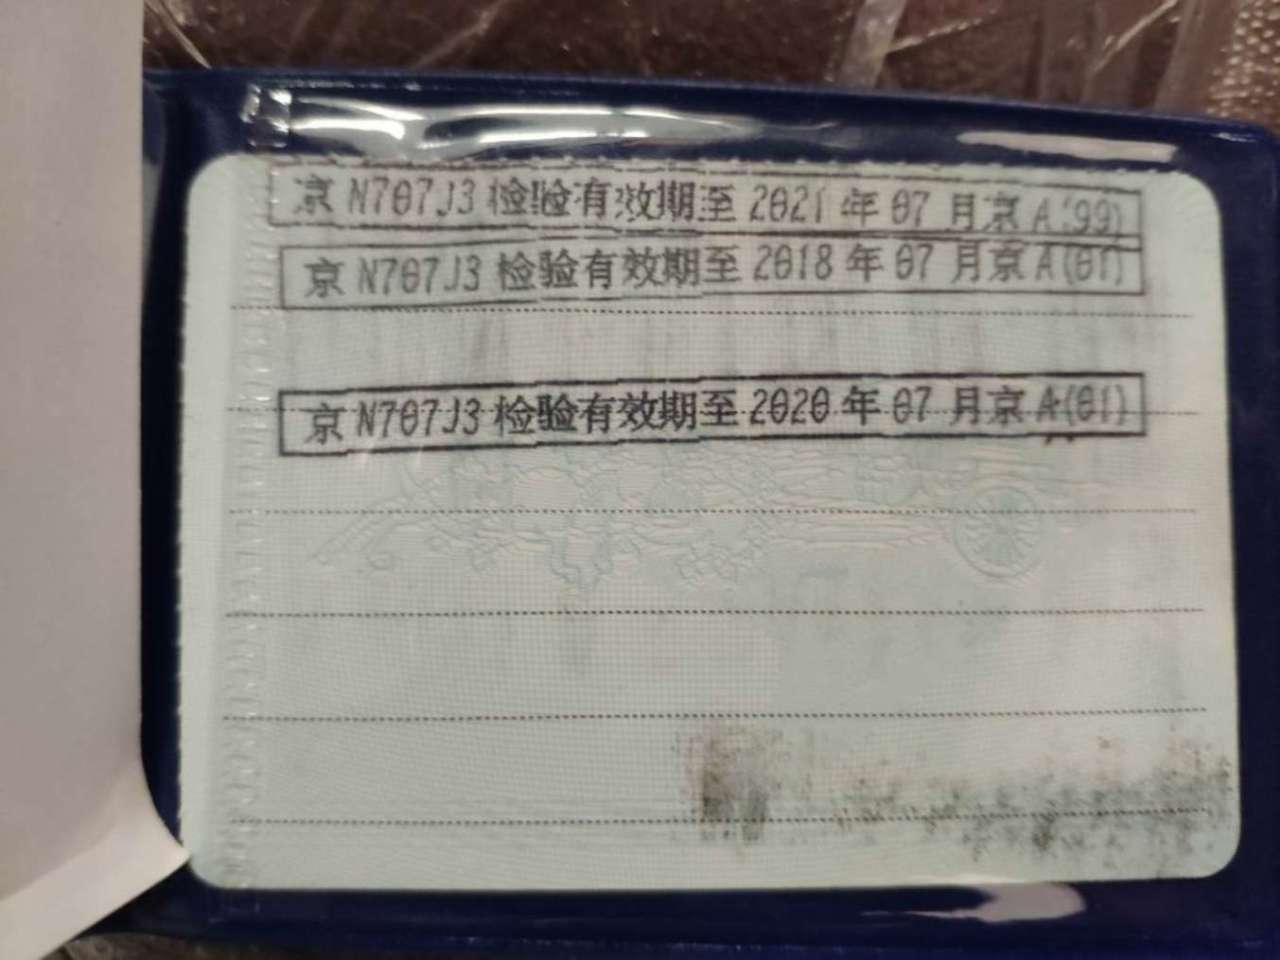 京 N707J3 检验有效期至 2021 年 07 月京 A(99)
京 N707J3 检验有效期至 2018 年 07 月京 A(01)
京 N707J3 检验有效期至 2020 年 07 月京 A(01)